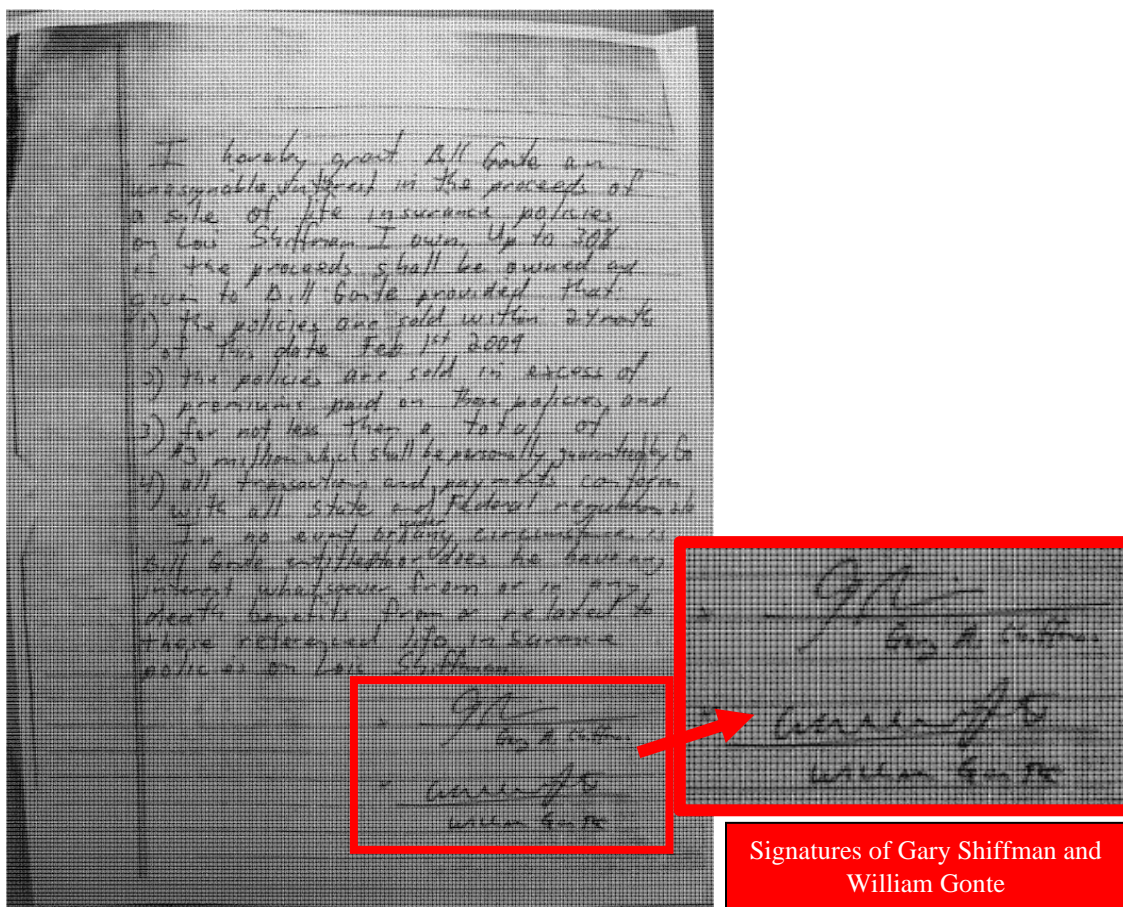 I hereby grant Bill Gonte an
unasignable interest in the proceeds of
a sale of life insurance policies
on Lois Shiffman I own. Up to 30%
of the proceeds shall be owned and
given to Bill Gonte provided that:
1) the policies are sold within 24 month
of this date Feb 1st 2009
2) the policies are sold in excess of
premiums paid on those policies, and
3) for not less then a total of
$3 million which shall be personally guaranteed by Go
4) all transactions and payments conform
with all State and Federal regulation
In no event or under any circumstance is
Bill Gonte entitled nor does he have any
interest whatsoever from or in any
death benefits from or related to
these referenced life insurance
policies on Lois Shiffman
Gary A. Shiffman
William Gonte
Gary A. Shiffman
William Gonte
Signatures of Gary Shiffman and
William Gonte